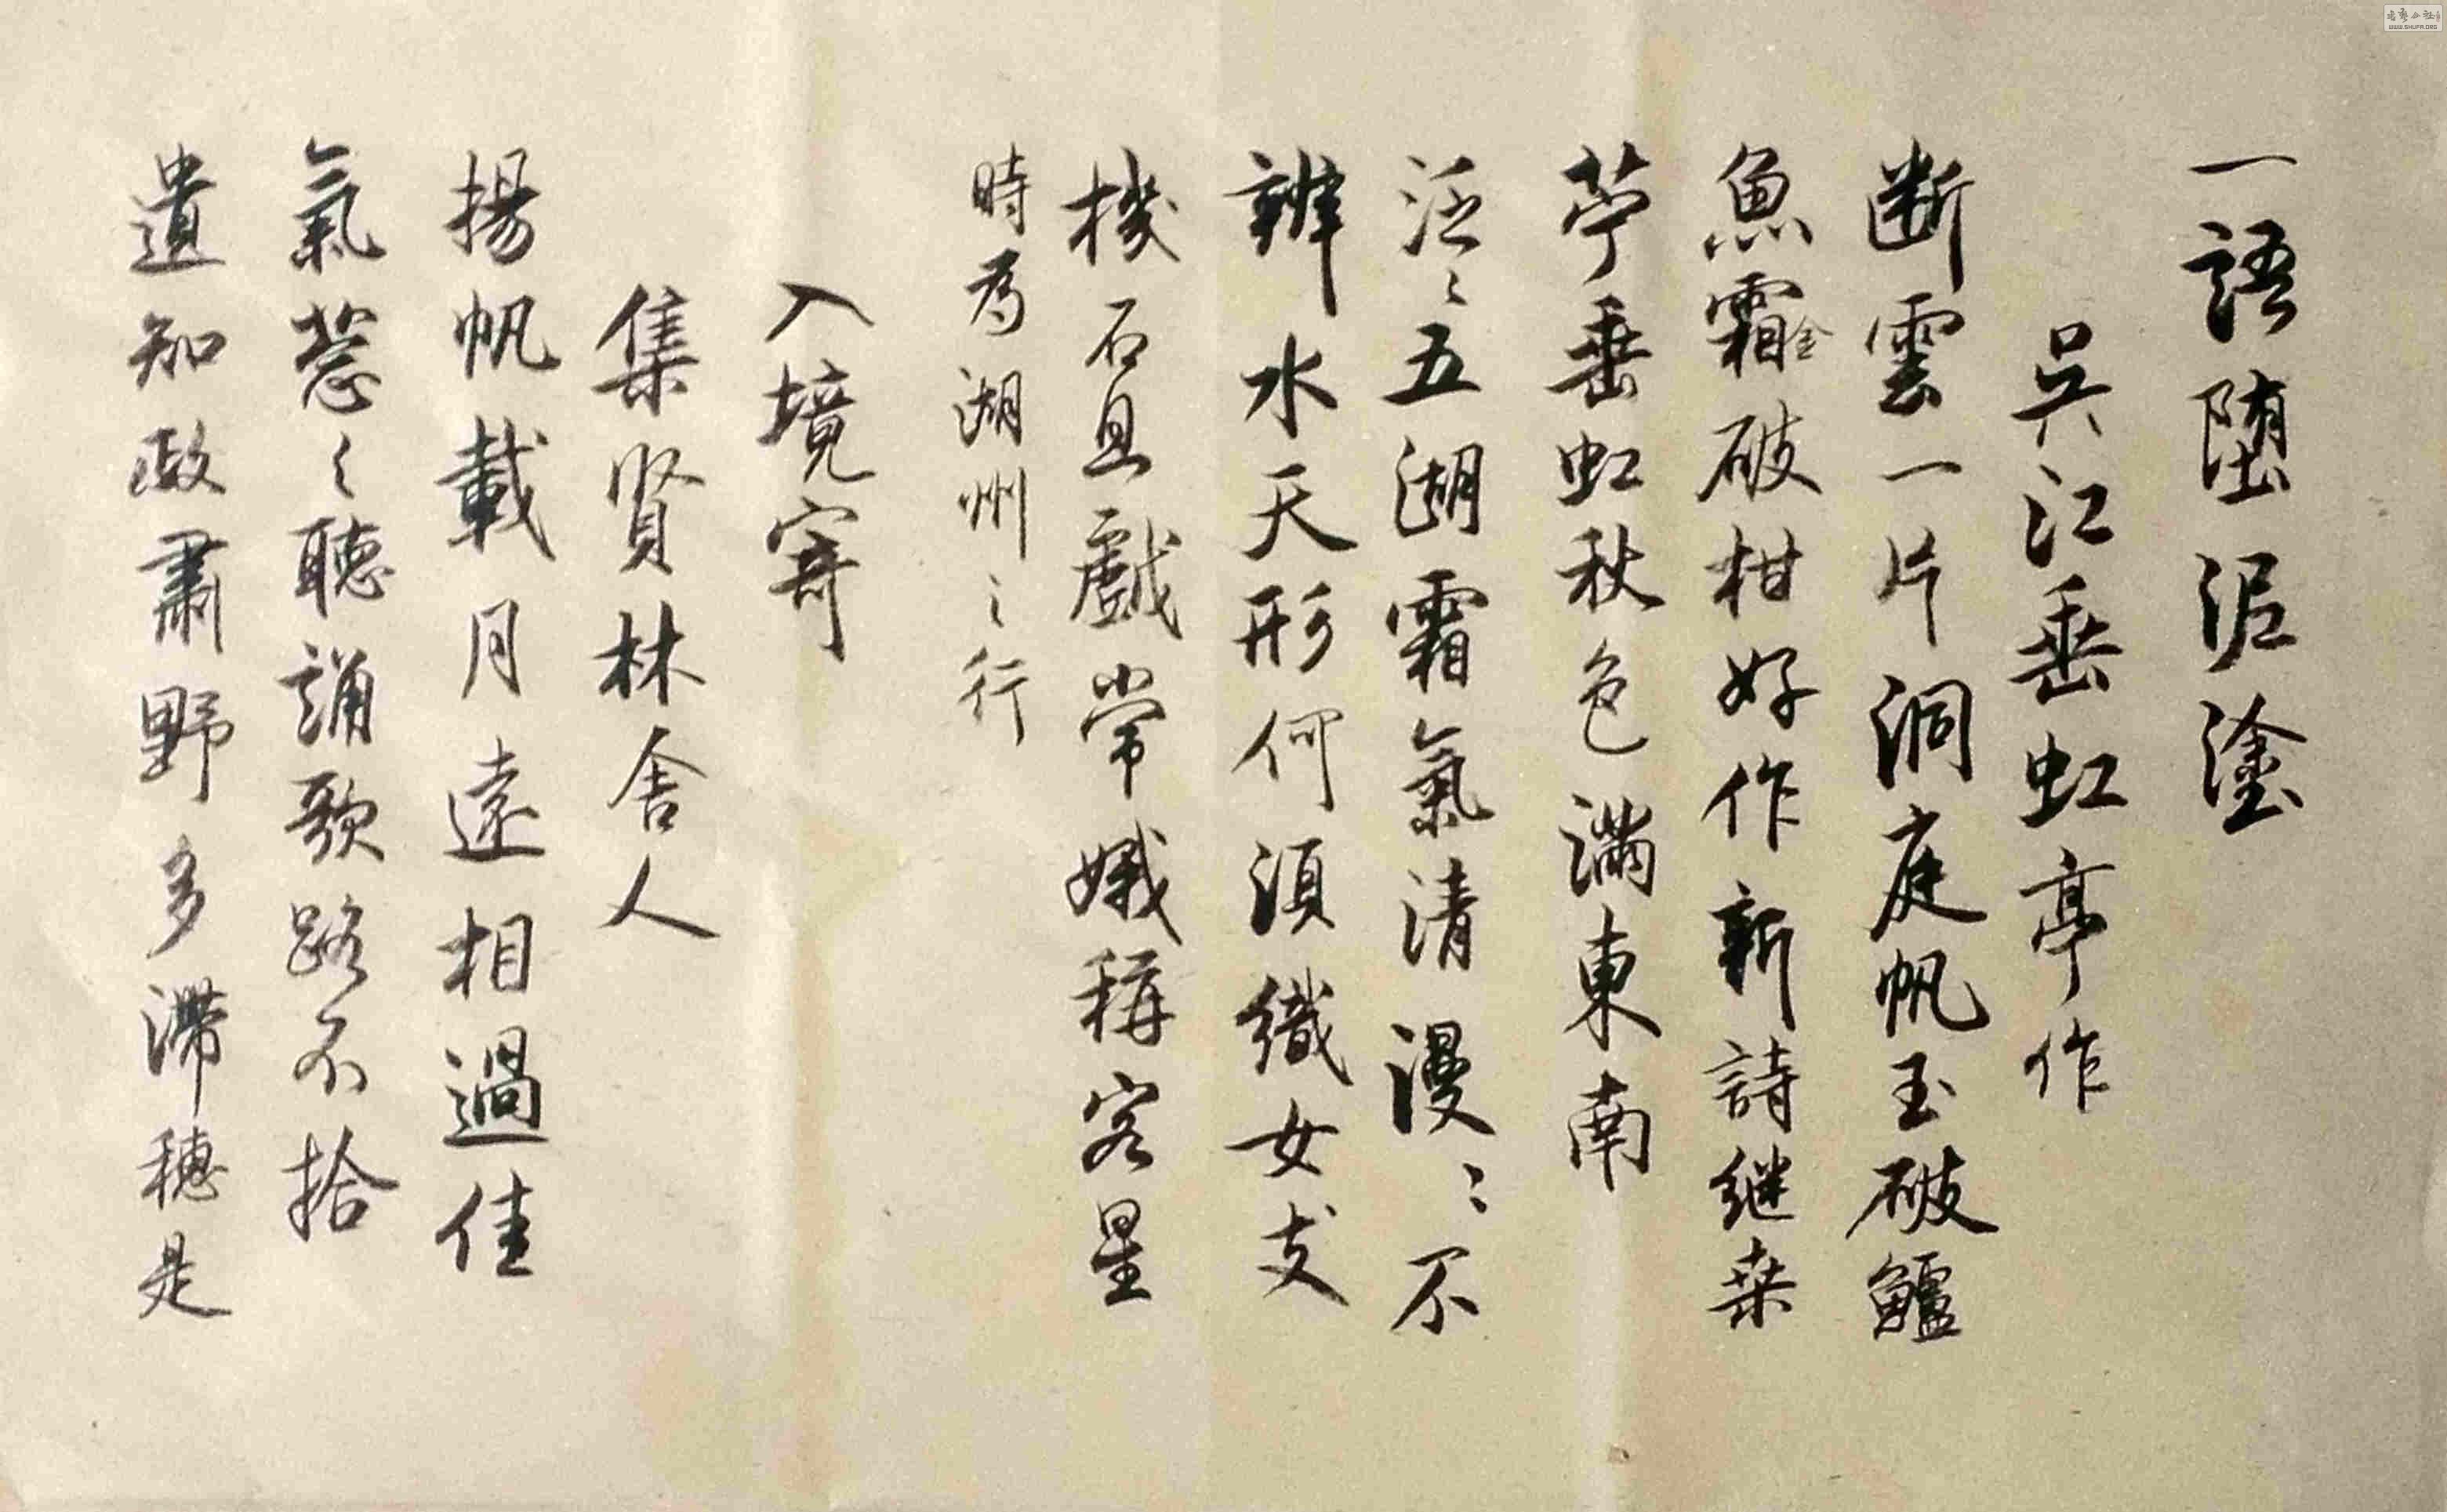 一語堕泥塗
吳江垂虹亭作
断雲一片洞庭帆玉破鱸
魚霜金破柑好作新詩継桒
苧垂虹秋色満東南
泛〻五湖霜氣清漫〻不
辨水天形何須織女支
機石且戲常娥稱客星
時為湖州之行
入境寄
集賢林舍人
揚帆載月遠相過佳
氣葱〻聽誦歌路不拾
遺知政肅野多滯穗是
WWW.SHUFA.ORG